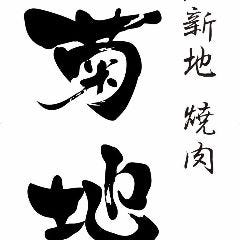 新地 焼肉
菊地